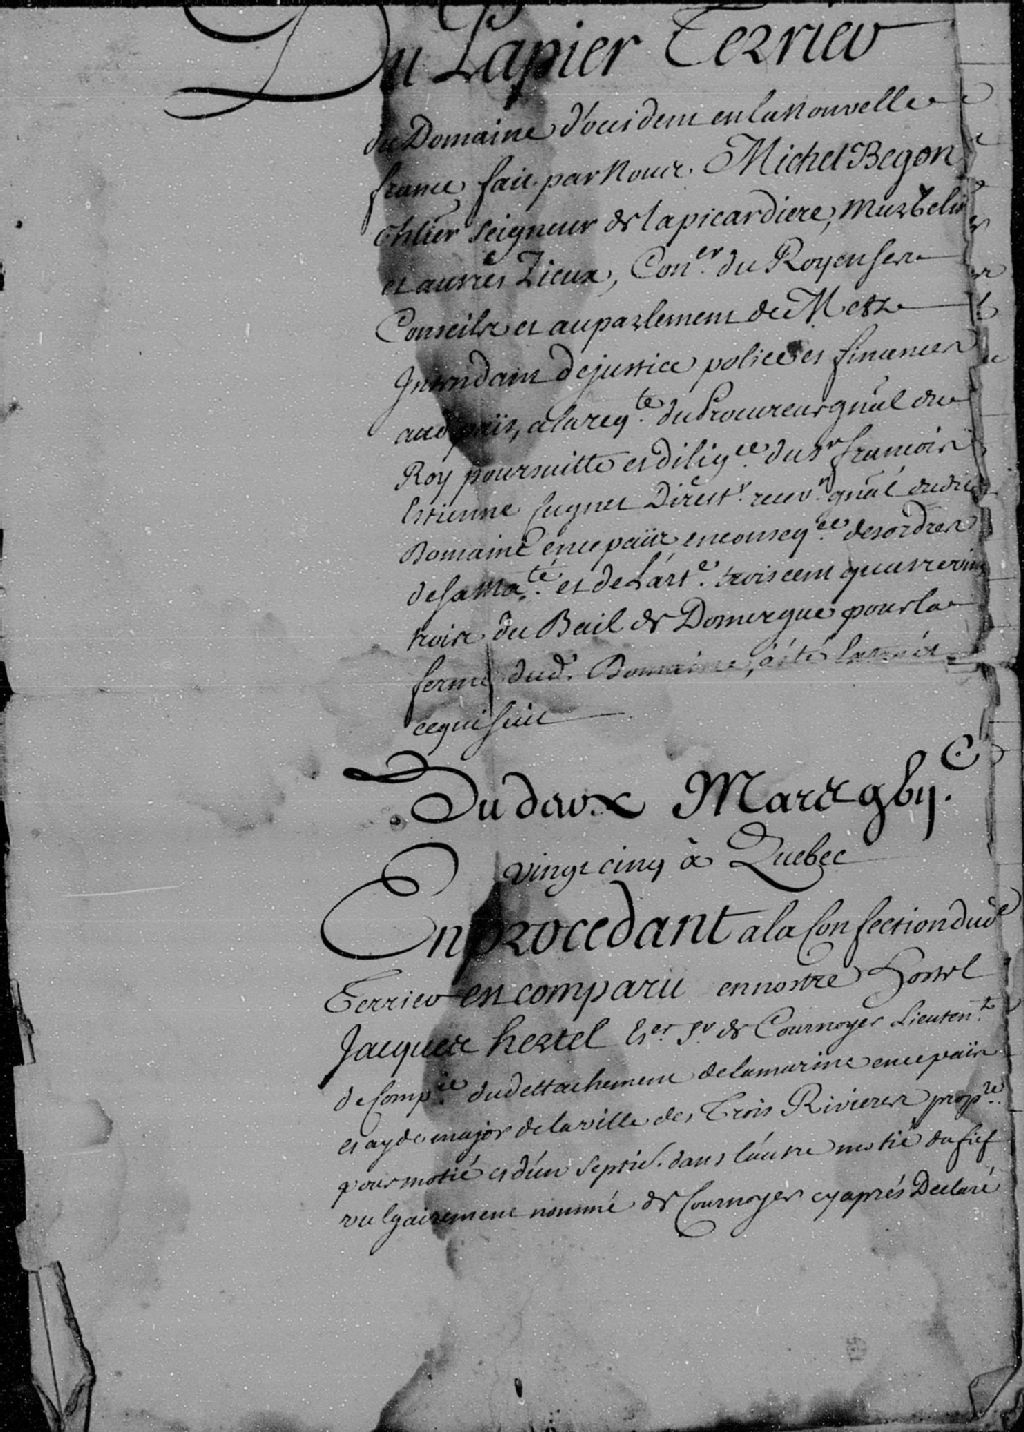 Du Papier Terrier
du Domaine d'occident en la nouvelle
france, fait par nous. Michel Begon
chlier seigneur de la picardiere, Murbelin
et autres Lieux, Con.er du Roy en ses
Conseils et au parlement de Metz
Intendant de justice police et finances
aud païs, a la reqte. du Procureur gnâl du
Roy poursuitte et diligce. du sr françois
Estienne Cugnet Direct.r recevr. gnâl dudit
Domaine en ce païs en conseqce. des ordres
de sa Ma.té et de L'arte. trois cent quatre vint
trois du Bail de Domergue pour la
ferme dud. Domaine, à été
ce qui suit
Du deux Mars 17bij.C
vingt cinq à Quebec
En procedant a la Confection dud
Terrier est comparu en nostre Hostel
Jacques hertel Es.er S.r de Cournoyer Lieuten.t
de Comp.ie du dettachement de la marine en ce païs
et ayde major de la ville des Trois Rivieres propre.
pour motié et d'un septié. dans l'autre motié du fief
vulgairement nommé de Cournoyer cy aprés Declaré